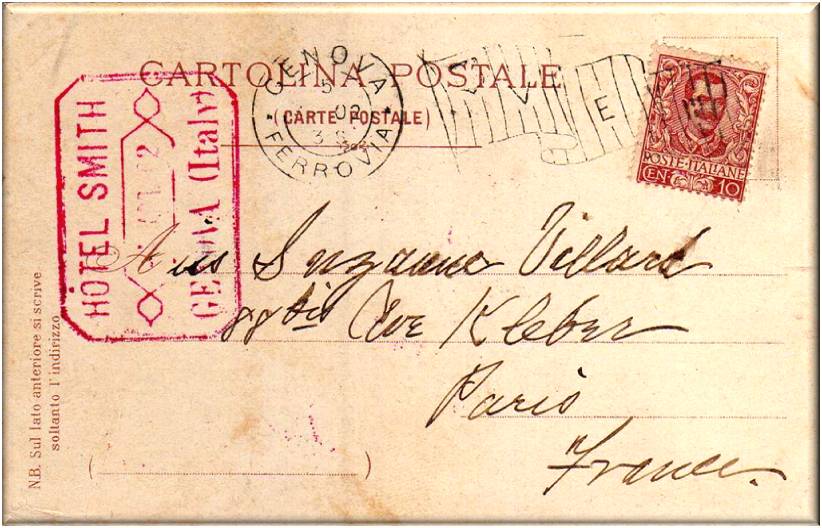 CARTOLINA POSTALE
(CARTE POSTALE)
GENOVA
FERROVIA
V E
POSTE·ITALIANE
CEN 10
HÔTEL SMITH
GENOVA (Italy)
Miss Suzanne Villard
Ave Kleber
Paris
France.
N.B. Sul lato anteriore si scrive
soltanto l'indirizzo